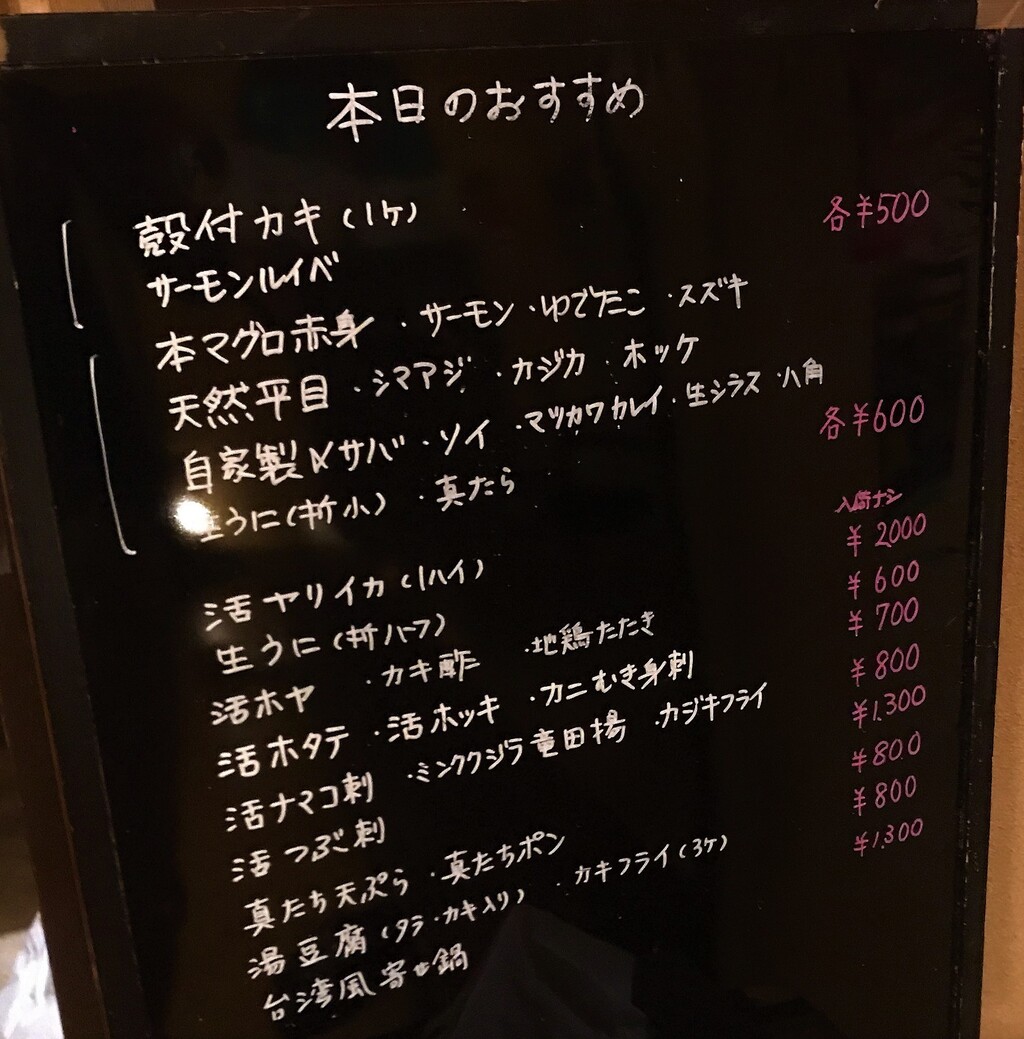 本日のおすすめ
殻付カキ(1ケ) 各¥500
サーモンルイベ
本マグロ赤身・サーモン・ゆでたこ・スズキ
天然平目・シマアジ・カジカ・ホッケ
自家製〆サバ・ソイ・マツカワカレイ・生シラス・八角 各¥600
生うに(折小)・真たら
活ヤリイカ(1ハイ) 入荷ナシ
生うに(折ハーフ) ¥2000
活ホヤ・カキ酢・地鶏たたき ¥600
活ホタテ・活ホッキ・カニむき身刺 ¥700
活ナマコ刺・ミンククジラ竜田揚・カジキフライ ¥800
活つぶ刺 ¥1,300
真たち天ぷら・真たちポン ¥800
湯豆腐(タラ・カキ入り)・カキフライ(3ケ) ¥800
台湾風寄せ鍋 ¥1,300